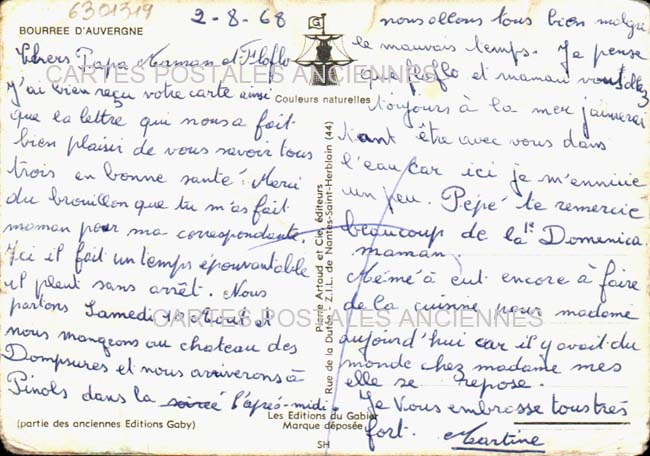 6301319
2-8-68
BOURREE D'AUVERGNE
Chers Papa Maman et Floflo
J'ai bien reçu votre carte ainsi
que la lettre qui nous a fait
bien plaisir de vous savoir tous
trois en bonne santé. Merci
du brouillon que tu m'as fait
maman pour ma correspondante.
Ici il fait un temps épouvantable
il pleut sans arrêt. Nous
partons Samedi Août et
nous mangeons au chateau des
Dompsures et nous arriverons à
Pinols dans la soirée l'après-midi.
(partie des anciennes Editions Gaby)
G
Couleurs naturelles
Pierre Artaud et Cie, éditeurs
Rue de la Dutée, Z.I.L. de Nantes-Saint-Herblain (44)
Les Editions du Gabier
Marque déposée
SH
nous allons tous bien malgré
le mauvais temps. Je pense
que floflo et maman vont
toujours à la mer j'aimerai
tant être avec vous dans
l'eau car ici je m'ennuie
un peu. Pépé te remercie
beaucoup de la Domenica
maman.
Mémé a eut encore à faire
de la cuisine pour madame
aujourd'hui car il y avait du
monde chez madame mes
elle se repose.
Je Vous embrasse tous très
fort. Martine
CARTES POSTALES ANCIENNES
CARTES POSTALES ANCIENNES